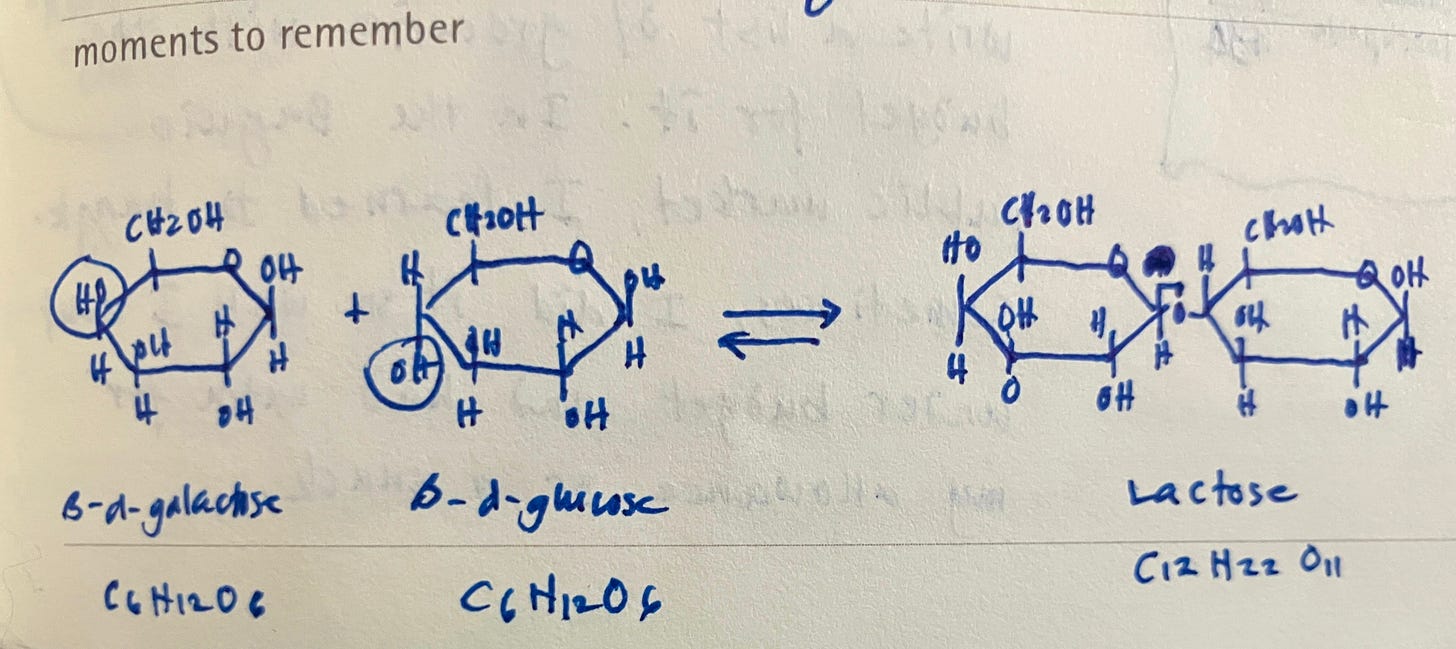 moments to remember
CH2OH CH2OH CH2OH CH2OH
HO OH H OH HO H OH
+ OH H O OH H
H OH H H OH OH H H H H
H OH H OH O OH H OH
B-d-galactose B-d-glucose Lactose
C6H12O6 C6H12O6 C12H22O11